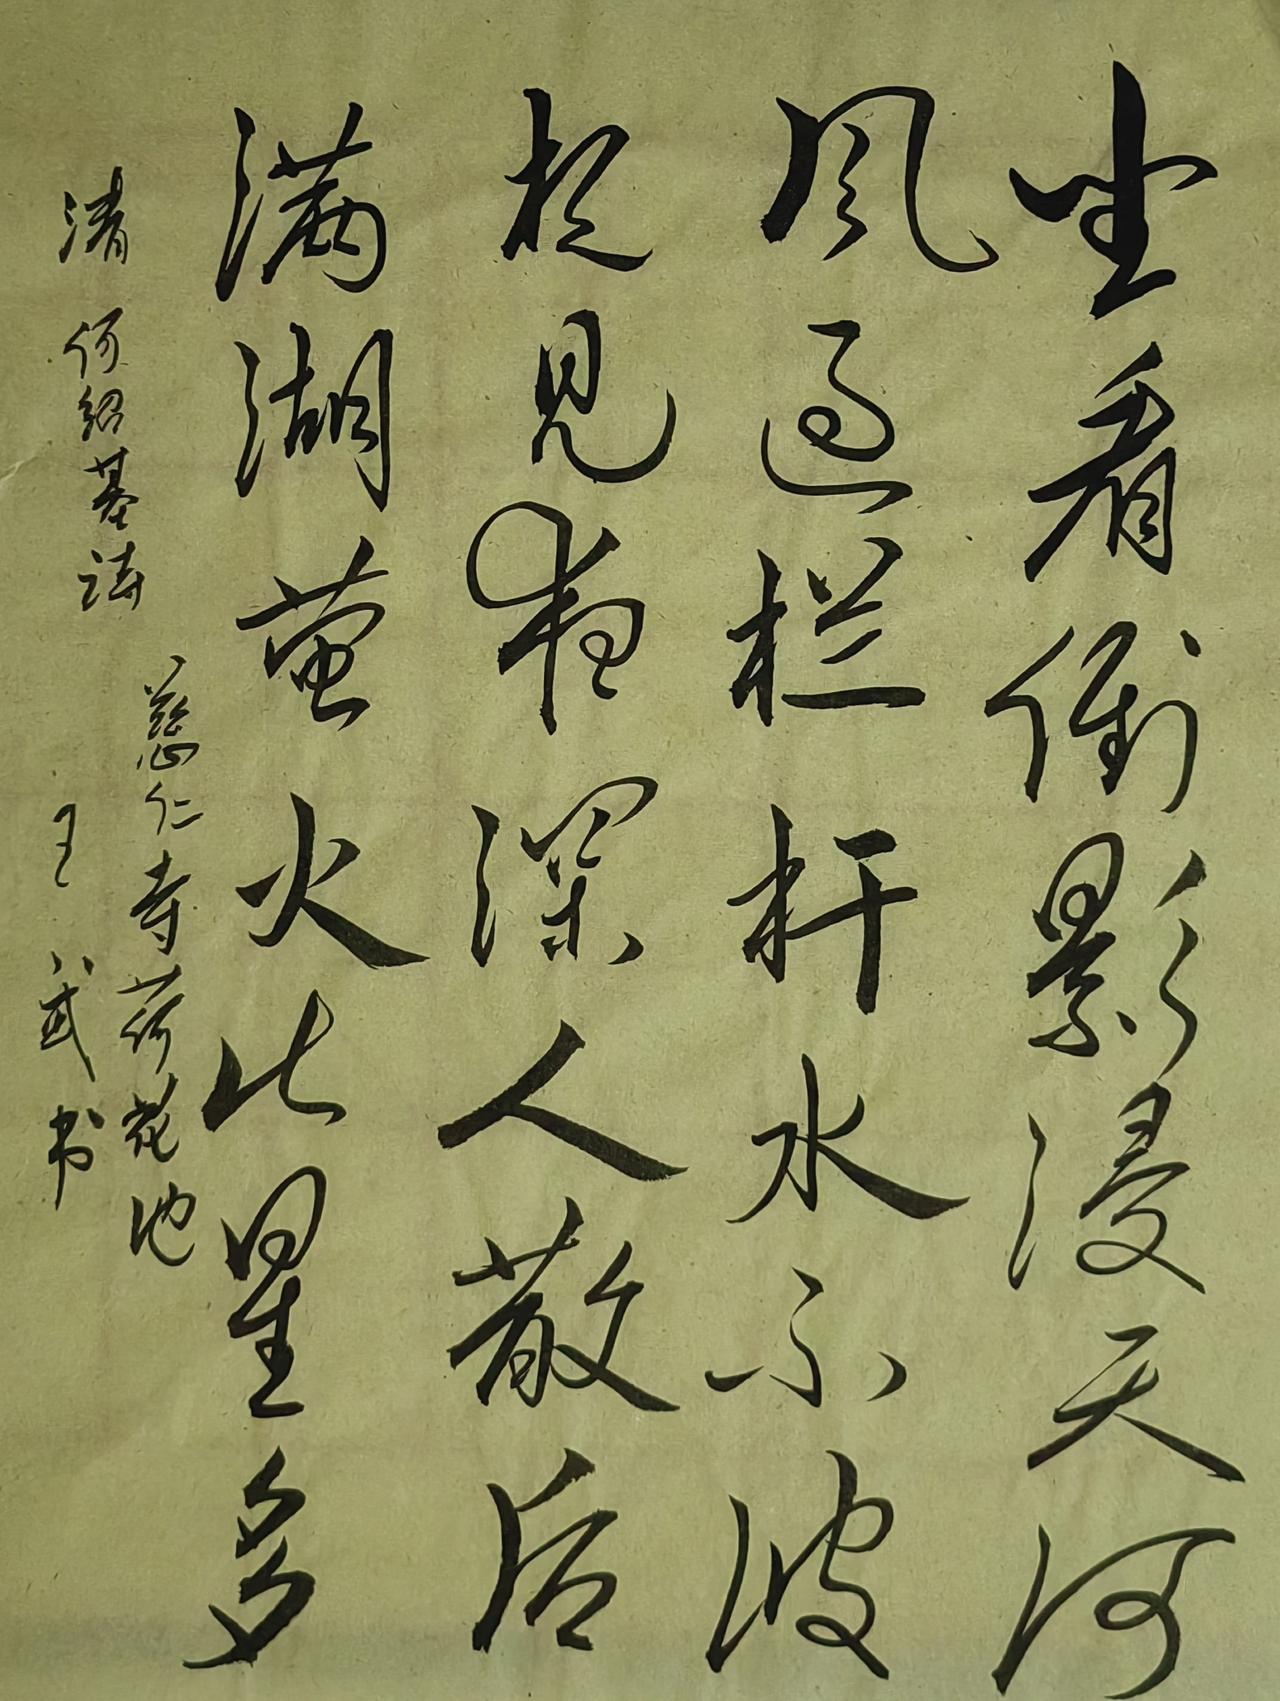 坐看倒影浸天河
风过栏杆水不波
想见夜深人散后
满湖萤火比星多
清 何绍基诗
慈仁寺荷花池
王 武书